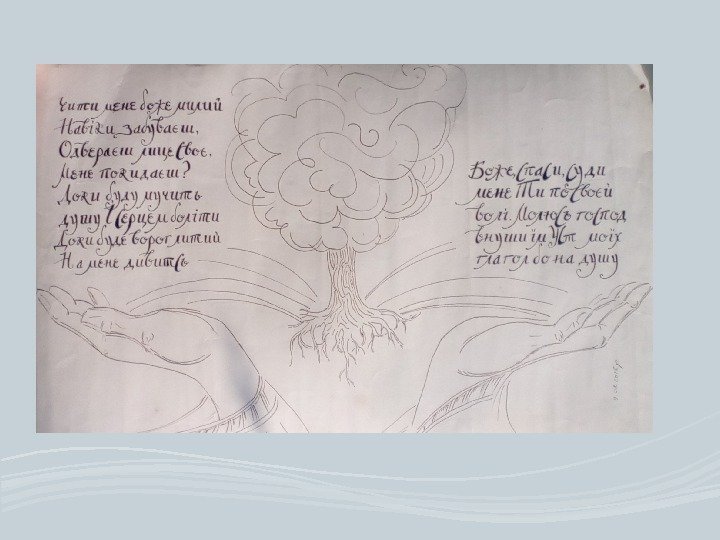 Чи ти мене боже милий
Навіки забуваєш,
Одвераєш лице своє,
Мене покидаєш?
Доки буду мучить
душу І серцем боліти
Доки буде ворог лютий
На мене дивитсь
Боже, спаси, суди
мене Ти по своєй
волі. Молюсь господ
внуши їм Уст моїх
глагол бо на душу